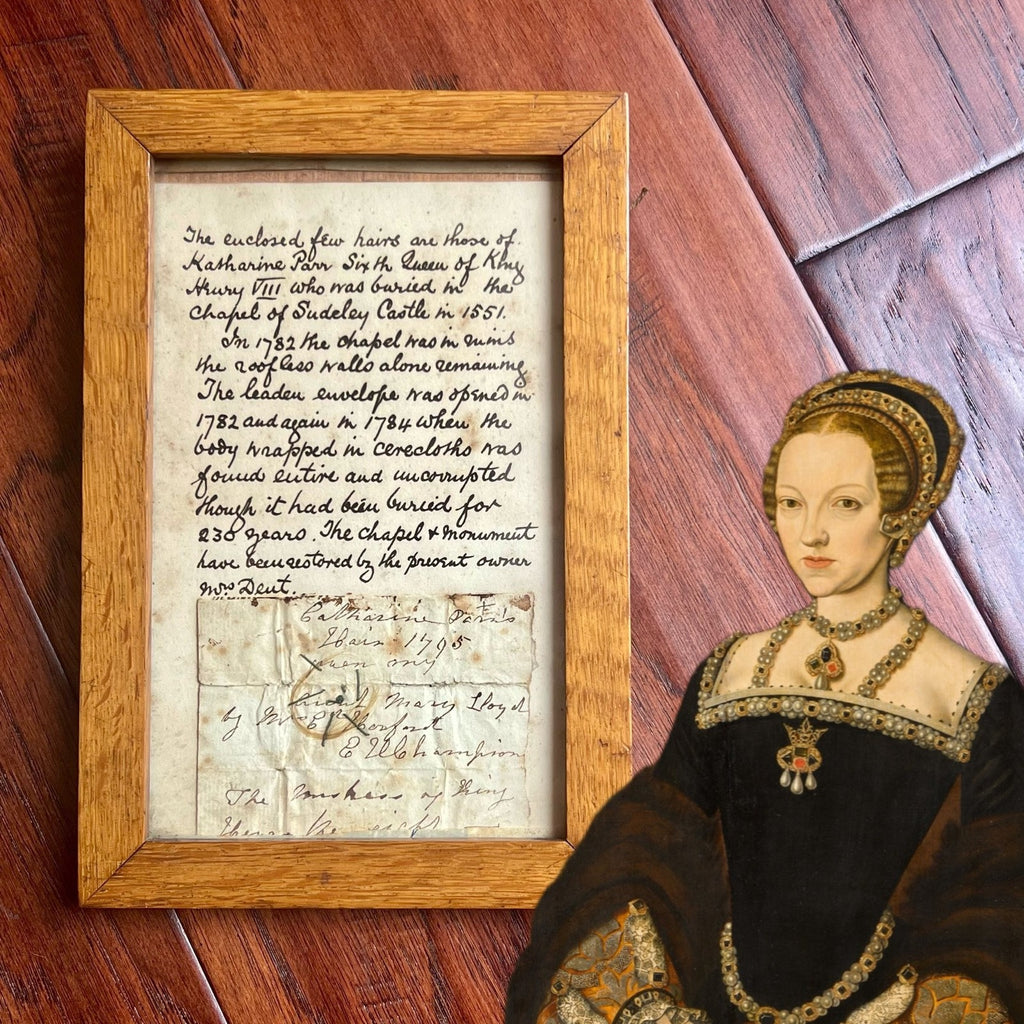 The enclosed few hairs are those of
Katharine Parr Sixth Queen of King
Henry VIII who was buried in the
chapel of Sudeley Castle in 1551.
In 1782 the chapel was in ruins
the roofless walls alone remaining
The leaden envelope was opened in
1782 and again in 1784 when the
body wrapped in cerecloths was
found entire and uncorrupted
though it had been buried for
230 years. The chapel & monument
have been restored by the present owner
Mrs Dent.
Catharine Parr's
Hair 1795
my
Aunt Mary Lloyd
by Mrs
E Champion
The of King
the